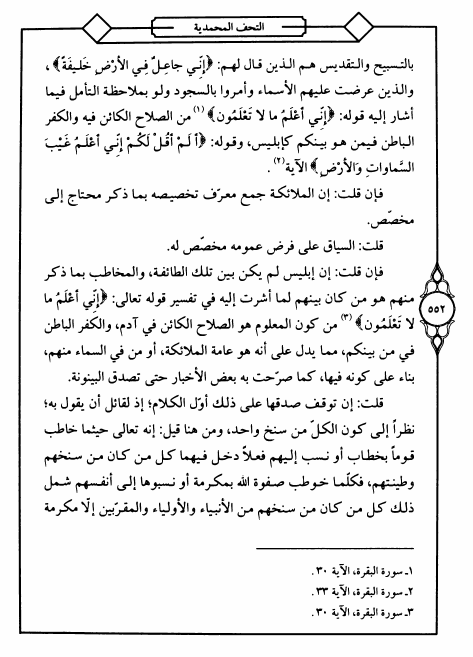 التحف المحمدية
بالتسبيح والتقديس هم الذين قال لهم: ﴿إِنّي جاعِلٌ فِي الأَرْضِ خَلِيفَةً﴾،
والذين عرضت عليهم الأسماء وأمروا بالسجود ولو بملاحظة التأمل فيما
أشار إليه قوله: ﴿إِنّي أَعْلَمُ ما لا تَعْلَمُون﴾(١) من الصلاح الكائن فيه والكفر
الباطن فيمن هو بينكم كإبليس، وقوله: ﴿أَلَمْ أَقُلْ لَكُمْ إِنّي أَعْلَمُ غَيْبَ
السَّماواتِ وَالأَرْضِ﴾ الآية(٢).
فإن قلت: إن الملائكة جمع معرّف تخصيصه بما ذكر محتاج إلى
مخصّص.
قلت: السياق على فرض عمومه مخصّص له.
فإن قلت: إن إبليس لم يكن بين تلك الطائفة، والمخاطب بما ذكر
منهم هو من كان بينهم لما أشرت إليه في تفسير قوله تعالى: ﴿إِنّي أَعْلَمُ ما
لا تَعْلَمُون﴾(٣) من كون المعلوم هو الصلاح الكائن في آدم، والكفر الباطن
في من بينكم، مما يدل على أنه هو عامة الملائكة، أو من في السماء منهم،
بناء على كونه فيها، كما صرّحت به بعض الأخبار حتى تصدق البينونة.
قلت: إن توقف صدقها على ذلك أوّل الكلام؛ إذ لقائل أن يقول به؛
نظراً إلى كون الكلّ من سنخ واحد، ومن هنا قيل: إنه تعالى حيثما خاطب
قوماً بخطاب أو نسب إليهم فعلاً دخل فيهما كل من كان من سنخهم
وطينتهم، فكلّما خوطب صفوة الله بمكرمة أو نسبوها إلى أنفسهم شمل
ذلك كل من كان من سنخهم من الأنبياء والأولياء والمقرّبين إلّا مكرمة
٥٥٢
١ـ سورة البقرة، الآية ٣٠.
٢ـ سورة البقرة، الآية ٣٣.
٣ـ سورة البقرة، الآية ٣٠.